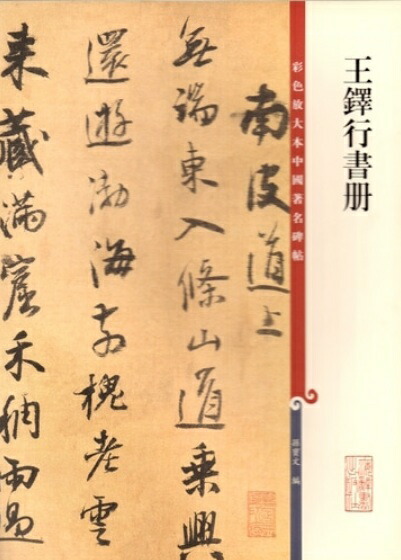 王鐸行書册
彩色放大本中國著名碑帖
孫寶文 編
南皮道上
無端東入條山道乘興
還遊渤海前槐老雲
來藏滿窟禾稠雨過